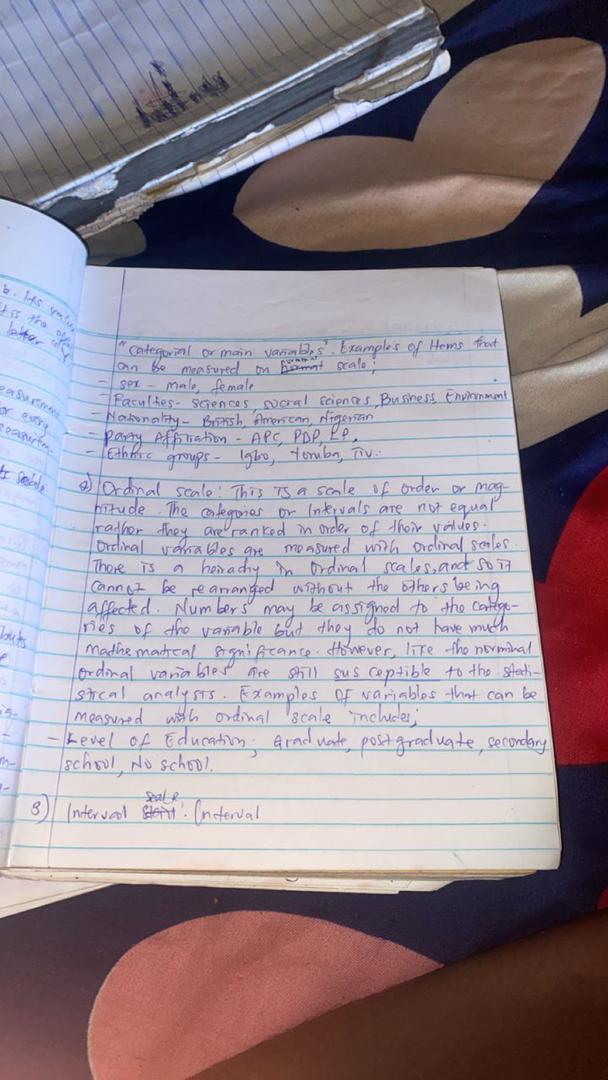 "categorial or main variables". Examples of Items that
can be measured on nominal scale;
- sex - male, female
- Faculties - sciences, social sciences, Business, Environment
- Nationality - British, American, Nigerian
- Party Affiliation - APC, PDP, LP,
- Ethnic groups - Igbo, Yoruba, Tiv..
2) Ordinal scale: This is a scale of order or mag-
nitude. The categories or Intervals are not equal
rather they are ranked in order of their values.
Ordinal variables are measured with ordinal scales.
There is a heirachy in Ordinal scales, and so it
cannot be rearranged without the others being
affected. Numbers may be assigned to the catego-
ries of the variable but they do not have much
mathematical significance. However, like the norminal
ordinal variables are still susceptible to the stati-
stical analysis. Examples of variables that can be
measured with ordinal scale includes;
- Level of Education; Graduate, postgraduate, secondary
school, No school.
3) Interval scale: Interval